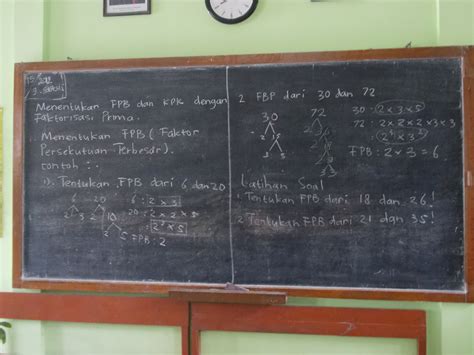 Menentukan FPB dan KPK dengan
Faktorisasi Prima.
Menentukan FPB (Faktor
Persekutuan Terbesar).
contoh :
1). Tentukan FPB dari 6 dan 20
6 20
6 : 2 x 3
2 3 2 10
20 : 2 x 2 x 5
2² x 5
2 5
FPB : 2
2 FBP dari 30 dan 72
30 72
30 : 2 x 3 x 5
72 : 2 x 2 x 2 x 3 x 3
(2³ x 3²)
3 5
FPB : 2 x 3 = 6
Latihan Soal
1. Tentukan FPB dari 18 dan 26!
2. Tentukan FPB dari 21 dan 35!